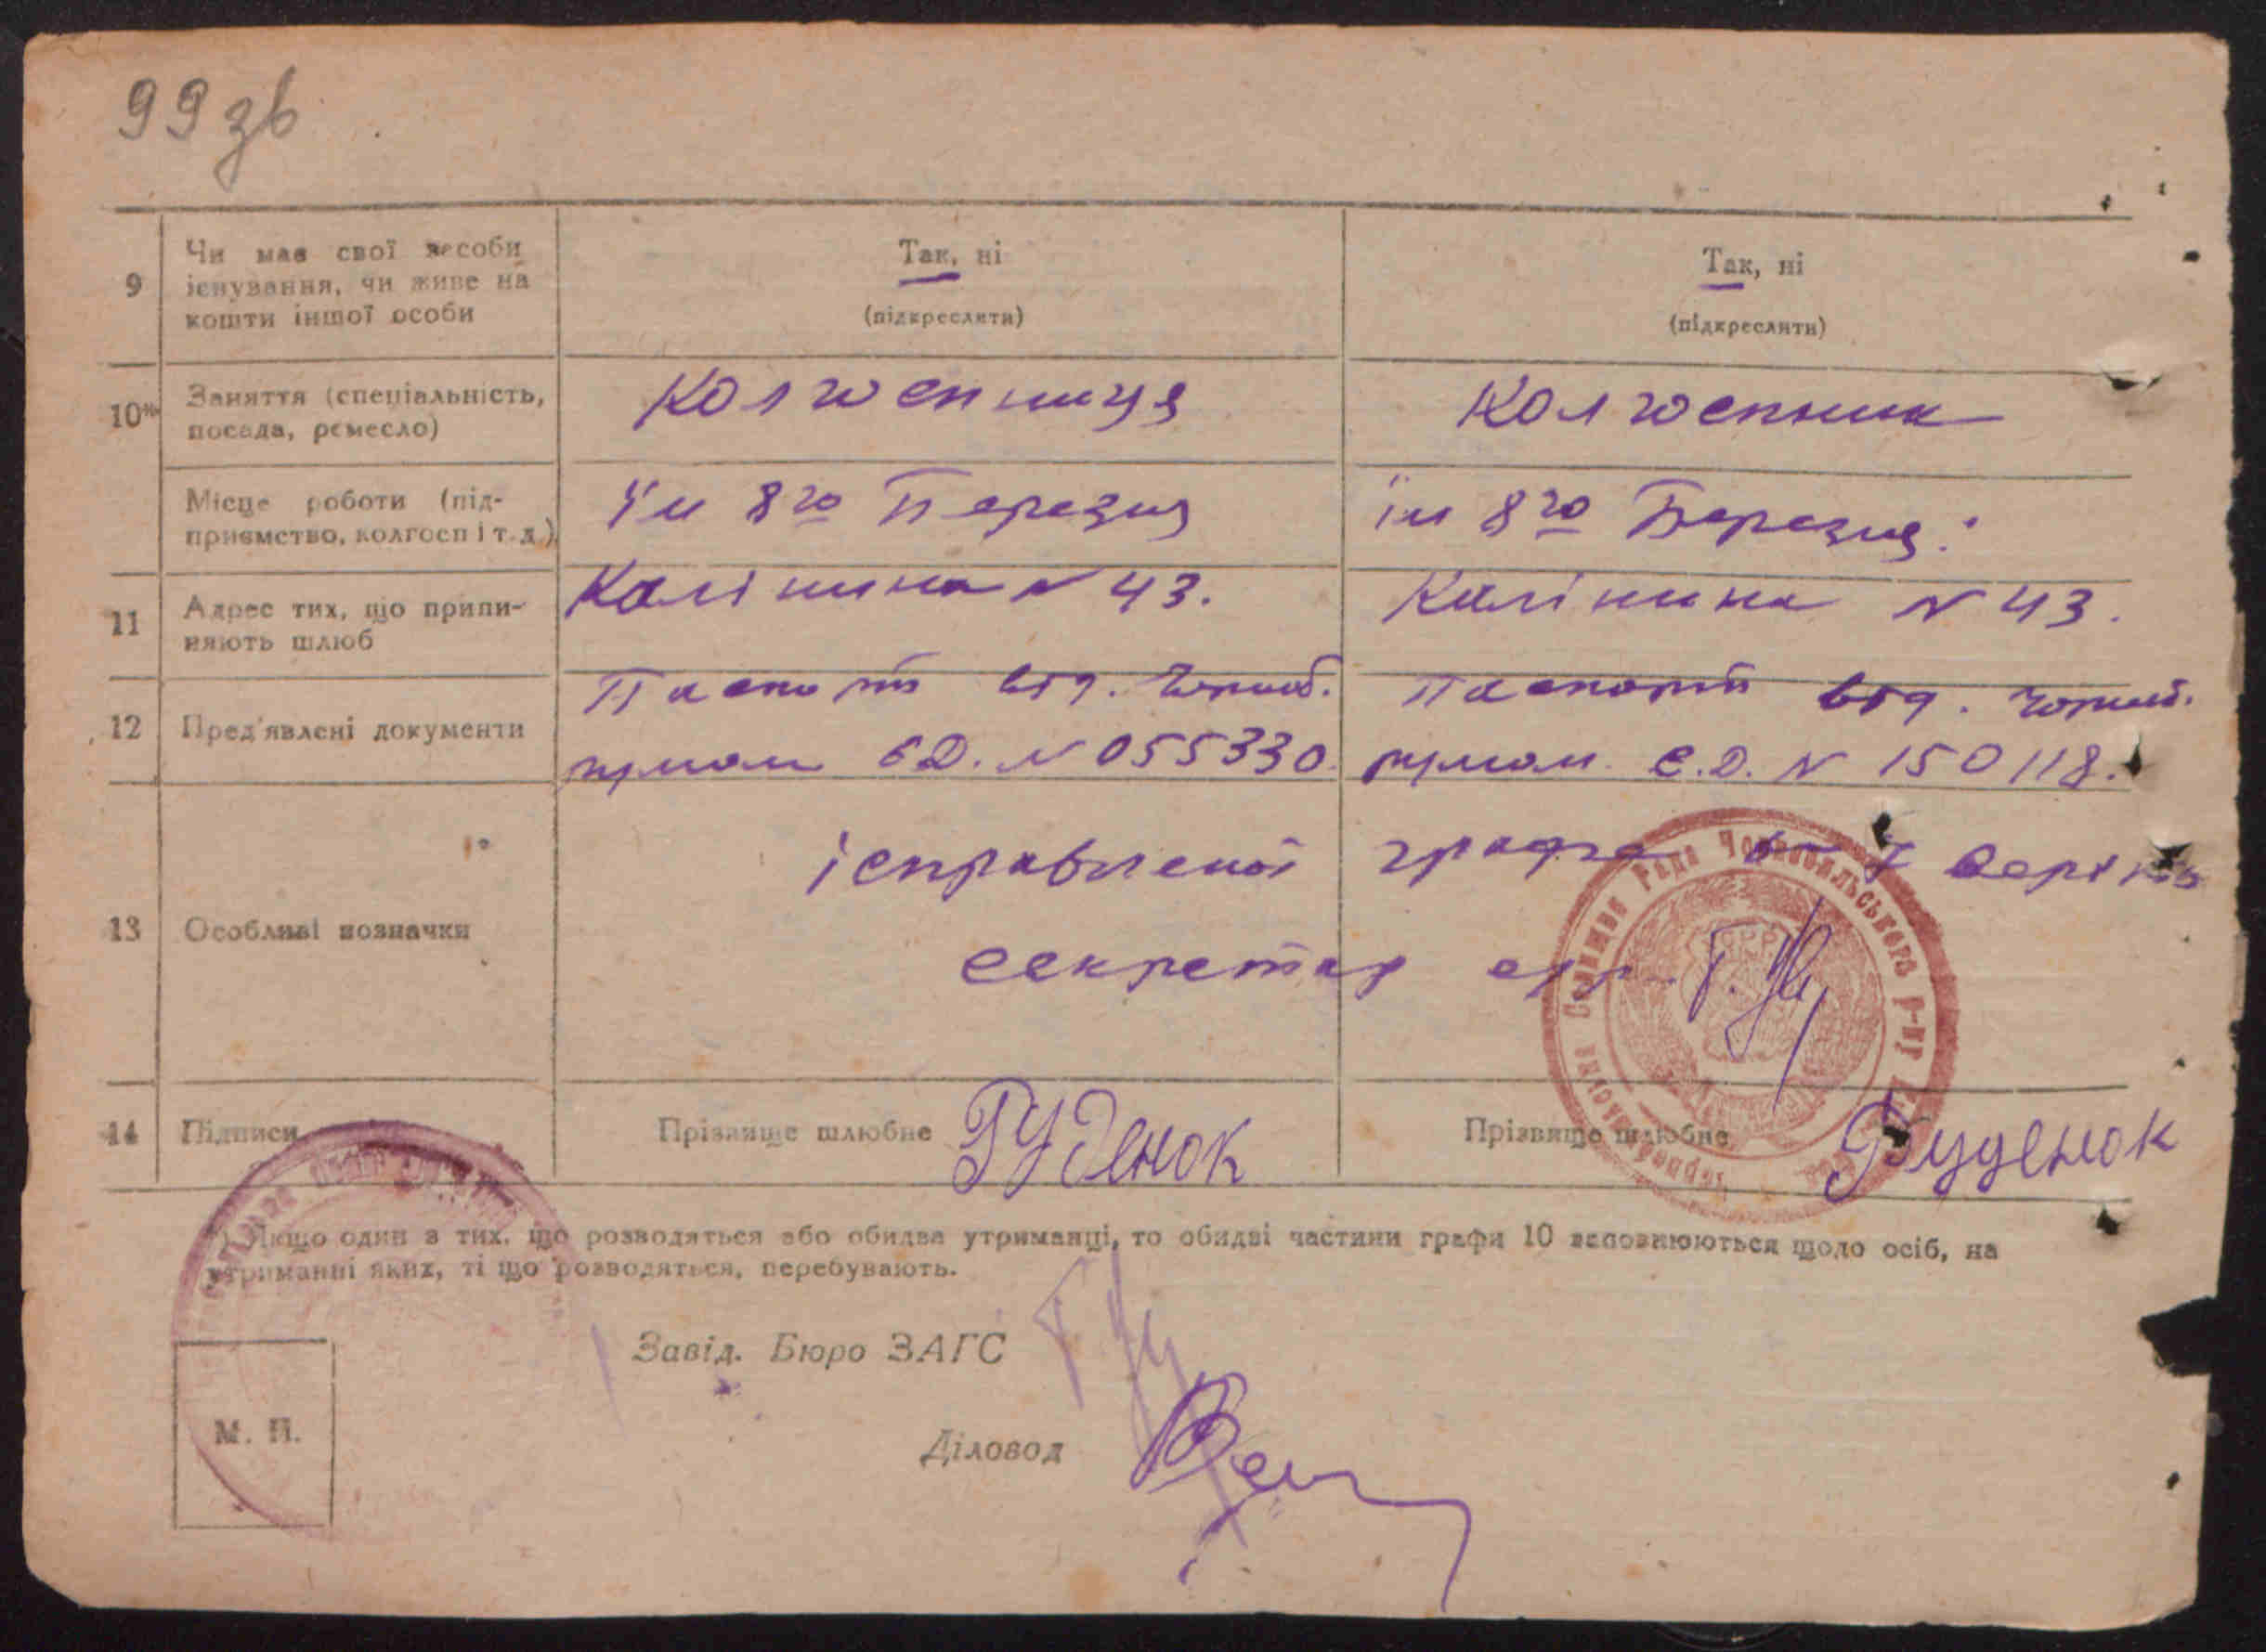 99 зв
9
Чи має свої засоби
існування, чи живе на
кошти іншої особи
Так, ні
(підкреслити)
Так, ні
(підкреслити)
10*)
Заняття (спеціальність,
посада, ремесло)
Колгоспниця
Колгоспник
Місце роботи (під-
приємство, колгосп і т. д.)
ім 8го Березня
ім 8го Березня.
11
Адрес тих, що припи-
няють шлюб
Калініна № 43.
Калініна № 43.
12
Пред'явлені документи
Паспорт від. Чорноб.
румом ЄД. № 055330.
Паспорт від. Чорноб.
румом. Є.Д. № 150118.
13
Особливі позначки
ісправленої графа
секретар
Рада Чорнобильського р-ну
14
Підписи
Прізвище шлюбне Руденок
Прізвище шлюбне Руденок
*) Якщо один з тих, що розводяться або обидва утриманці, то обидві частини графи 10 заповнюються щодо осіб, на
утриманні яких, ті що розводяться, перебувають.
Завід. Бюро ЗАГС
М. П.
Діловод